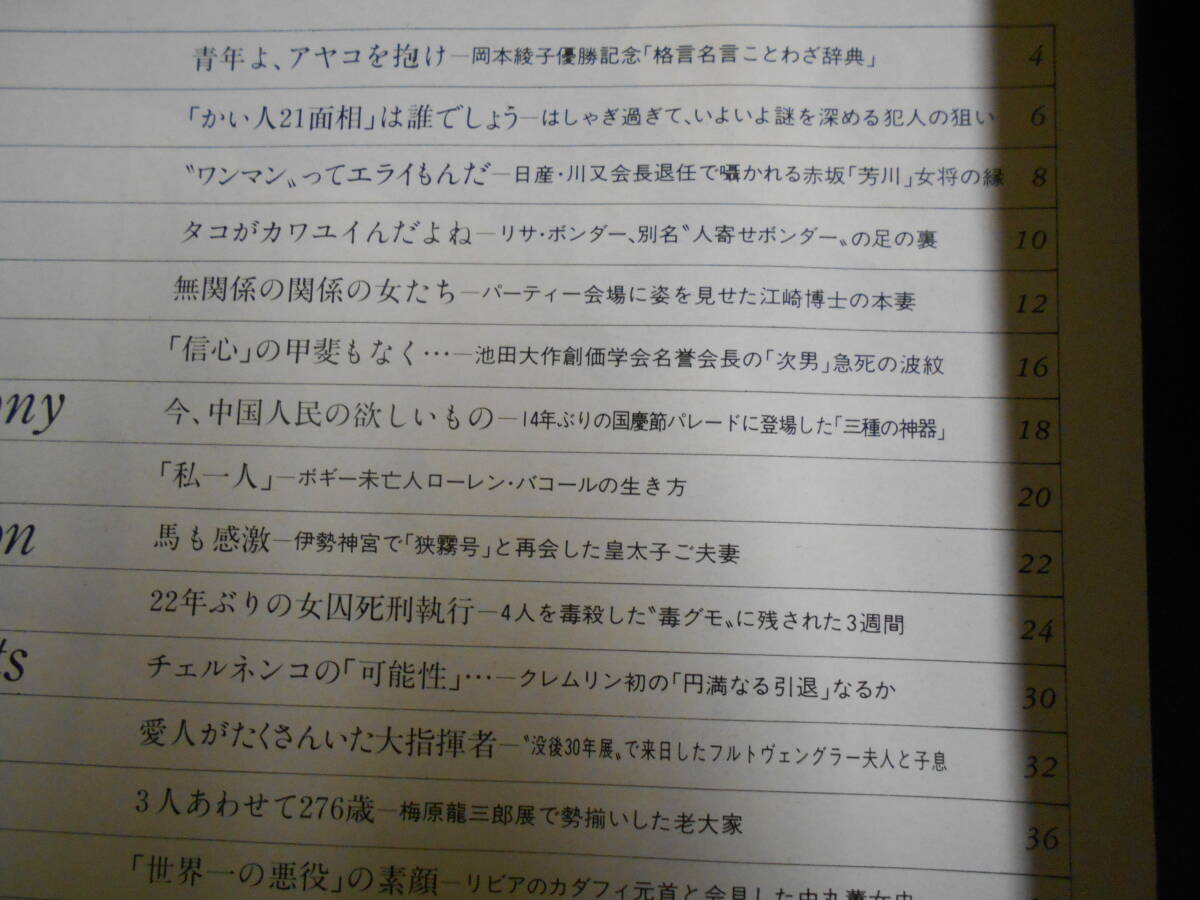 青年よ、アヤコを抱け―岡本綾子優勝記念「格言名言ことわざ辞典」 4
「かい人21面相」は誰でしょう―はしゃぎ過ぎて、いよいよ謎を深める犯人の狙い 6
〝ワンマン〟ってエライもんだ―日産・川又会長退任で囁かれる赤坂「芳川」女将の縁 8
タコがカワユイんだよね―リサ・ボンダー、別名〝人寄せボンダー〟の足の裏 10
無関係の関係の女たち―パーティー会場に姿を見せた江崎博士の本妻 12
「信心」の甲斐もなく…―池田大作創価学会名誉会長の「次男」急死の波紋 16
ony 今、中国人民の欲しいもの―14年ぶりの国慶節パレードに登場した「三種の神器」 18
「私一人」―ボギー未亡人ローレン・バコールの生き方 20
on 馬も感激―伊勢神宮で「狭霧号」と再会した皇太子ご夫妻 22
22年ぶりの女囚死刑執行―4人を毒殺した〝毒グモ〟に残された3週間 24
ts チェルネンコの「可能性」…―クレムリン初の「円満なる引退」なるか 30
愛人がたくさんいた大指揮者―〝没後30年展〟で来日したフルトヴェングラー夫人と子息 32
3人あわせて276歳―梅原龍三郎展で勢揃いした老大家 36
「世界一の悪役」の素顔―リビアのカダフィ元首と会見した中丸薫女史